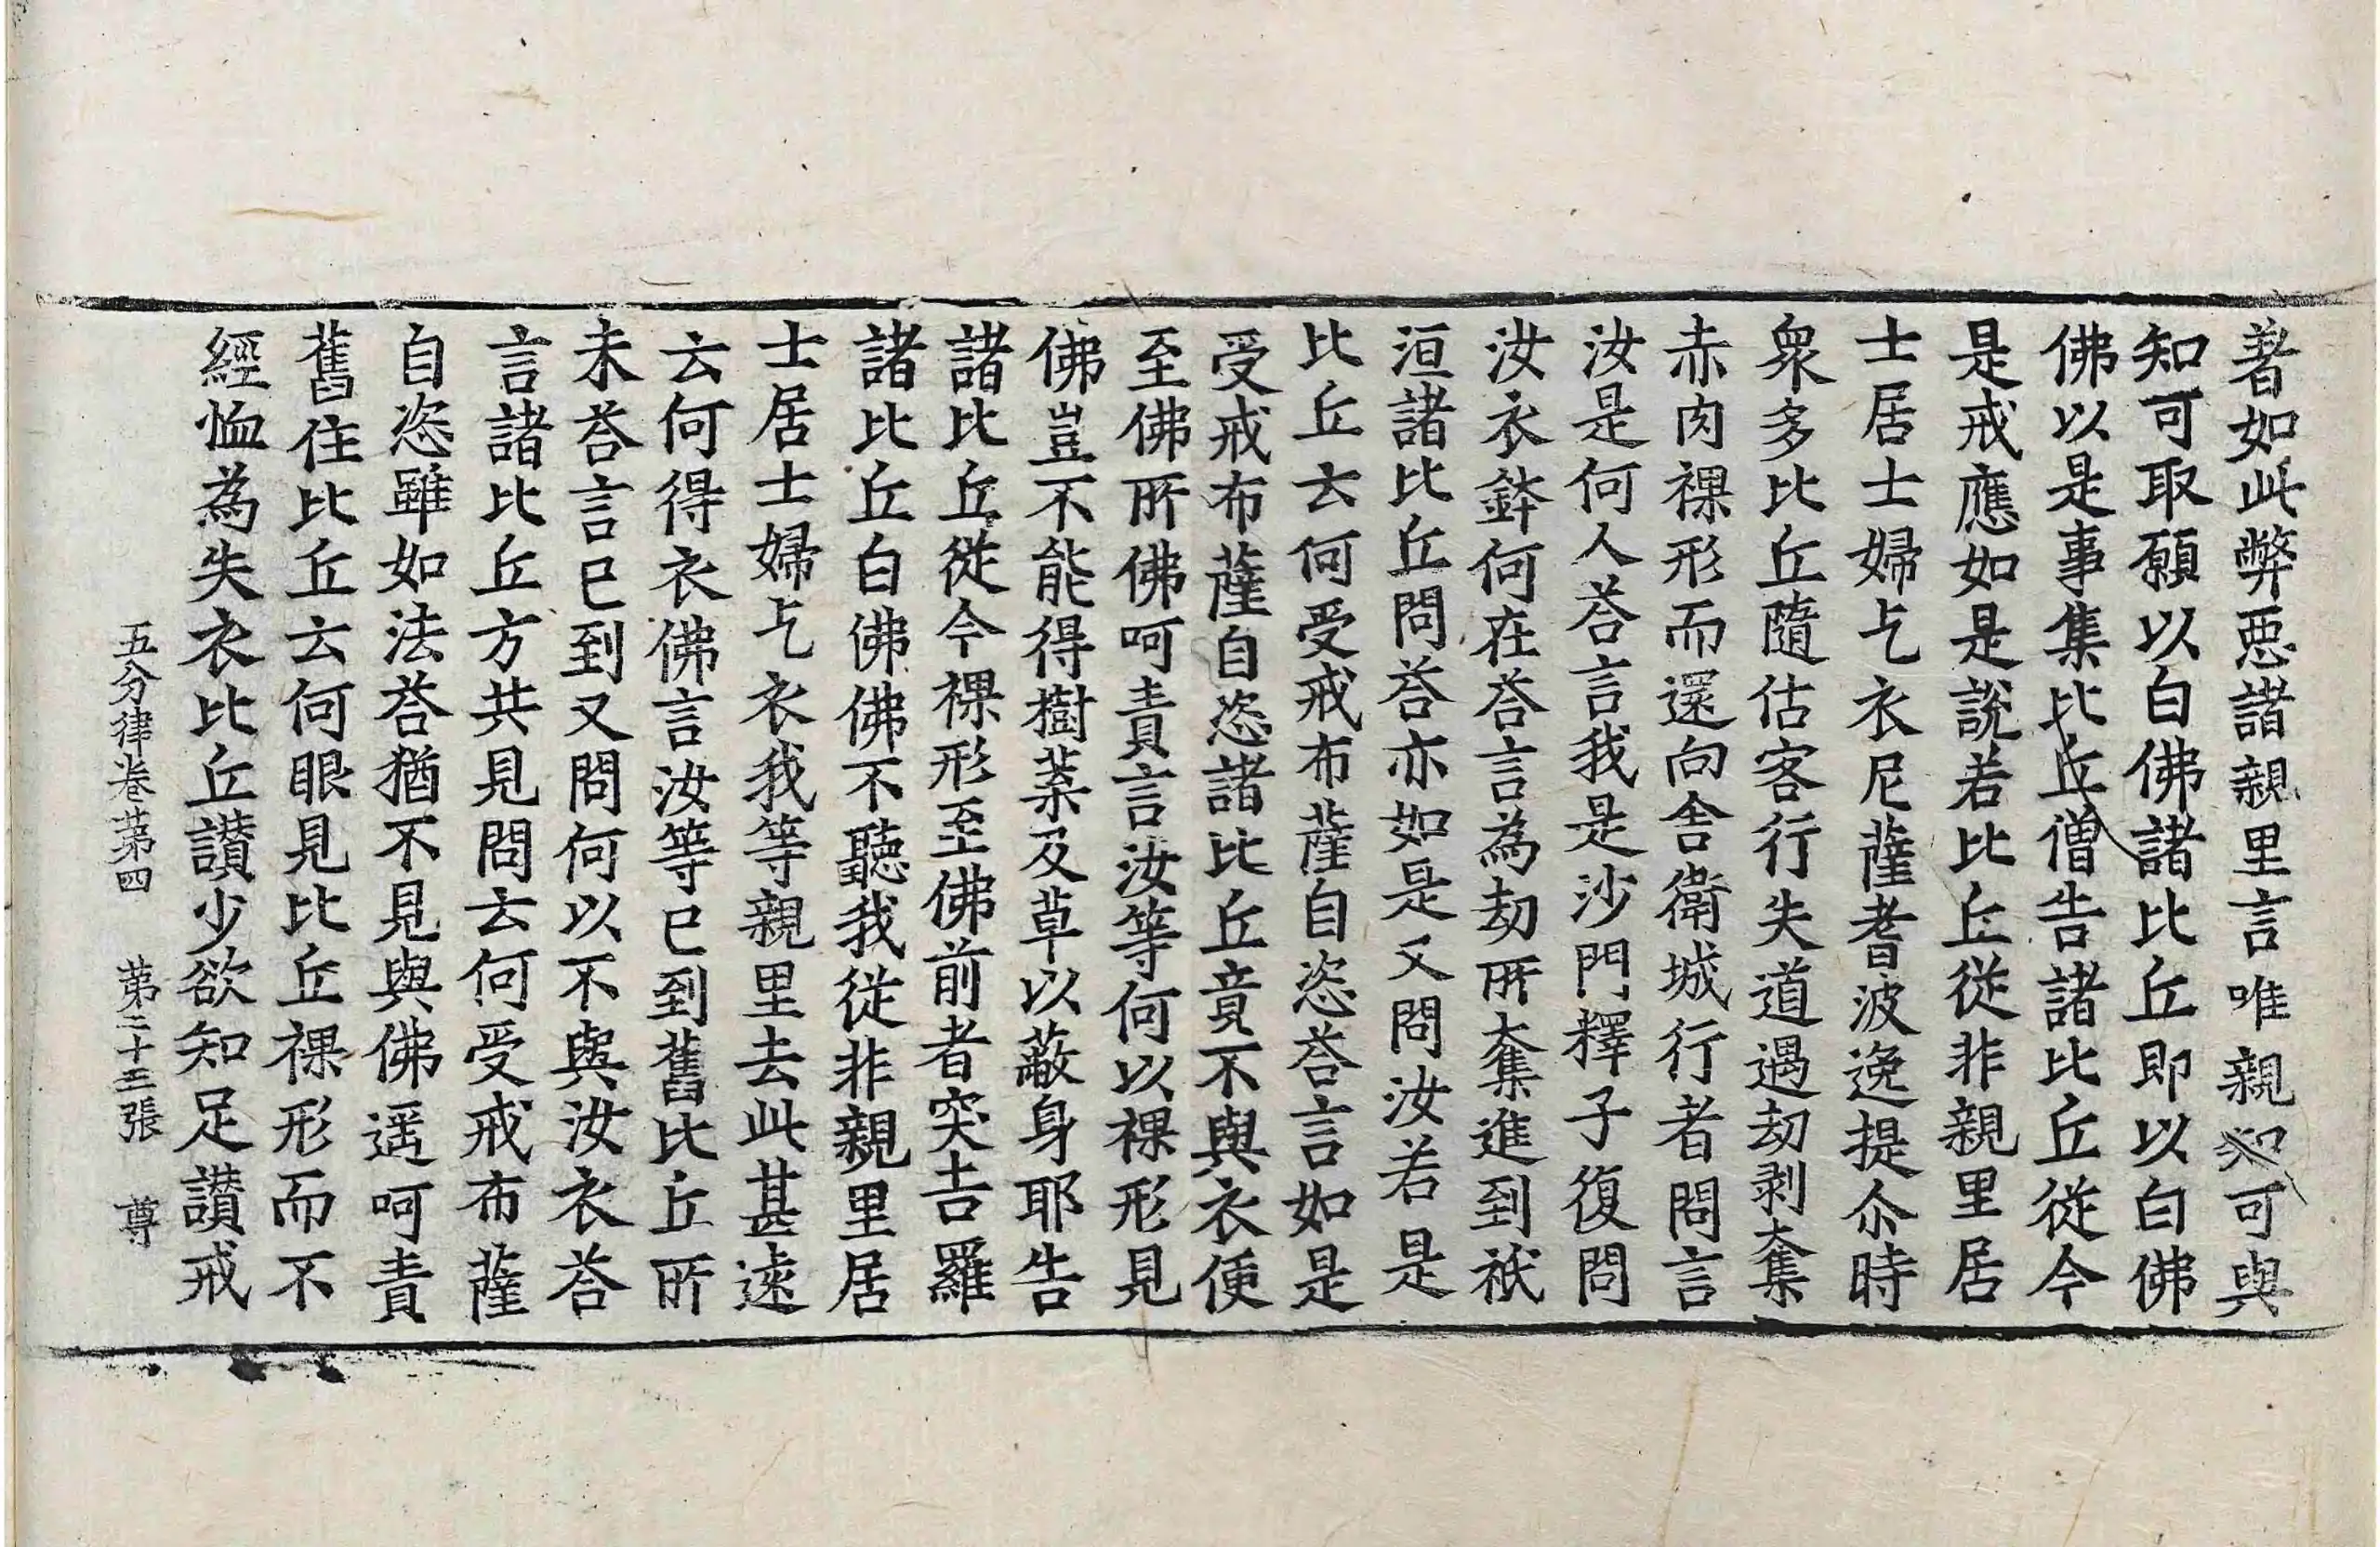 著如此弊惡諸親里言唯親知可與
知可取願以白佛諸比丘即以白佛
佛以是事集比丘僧告諸比丘從今
是戒應如是說若比丘從非親里居
士居士婦乞衣尼薩耆波逸提尒時
衆多比丘隨估客行失道遇劫剥奪
赤肉裸形而還向舍衛城行者問言
汝是何人荅言我是沙門釋子復問
汝衣鉢何在荅言為劫所奪進到祇
洹諸比丘問荅亦如是又問汝若是
比丘云何受戒布薩自恣荅言如是
受戒布薩自恣諸比丘竟不與衣便
至佛所佛呵責言汝等何以裸形見
佛豈不能得樹葉及草以蔽身耶告
諸比丘從今裸形至佛前者突吉羅
諸比丘白佛佛不聽我從非親里居
士居士婦乞衣我等親里去此甚遠
云何得衣佛言汝等已到舊比丘所
未荅言已到又問何以不與汝衣荅
言諸比丘方共見問云何受戒布薩
自恣雖如法荅猶不見與佛遥呵責
舊住比丘云何眼見比丘裸形而不
經恤為失衣比丘讃少欲知足讃戒
五分律卷苐四 苐二十三張 尊